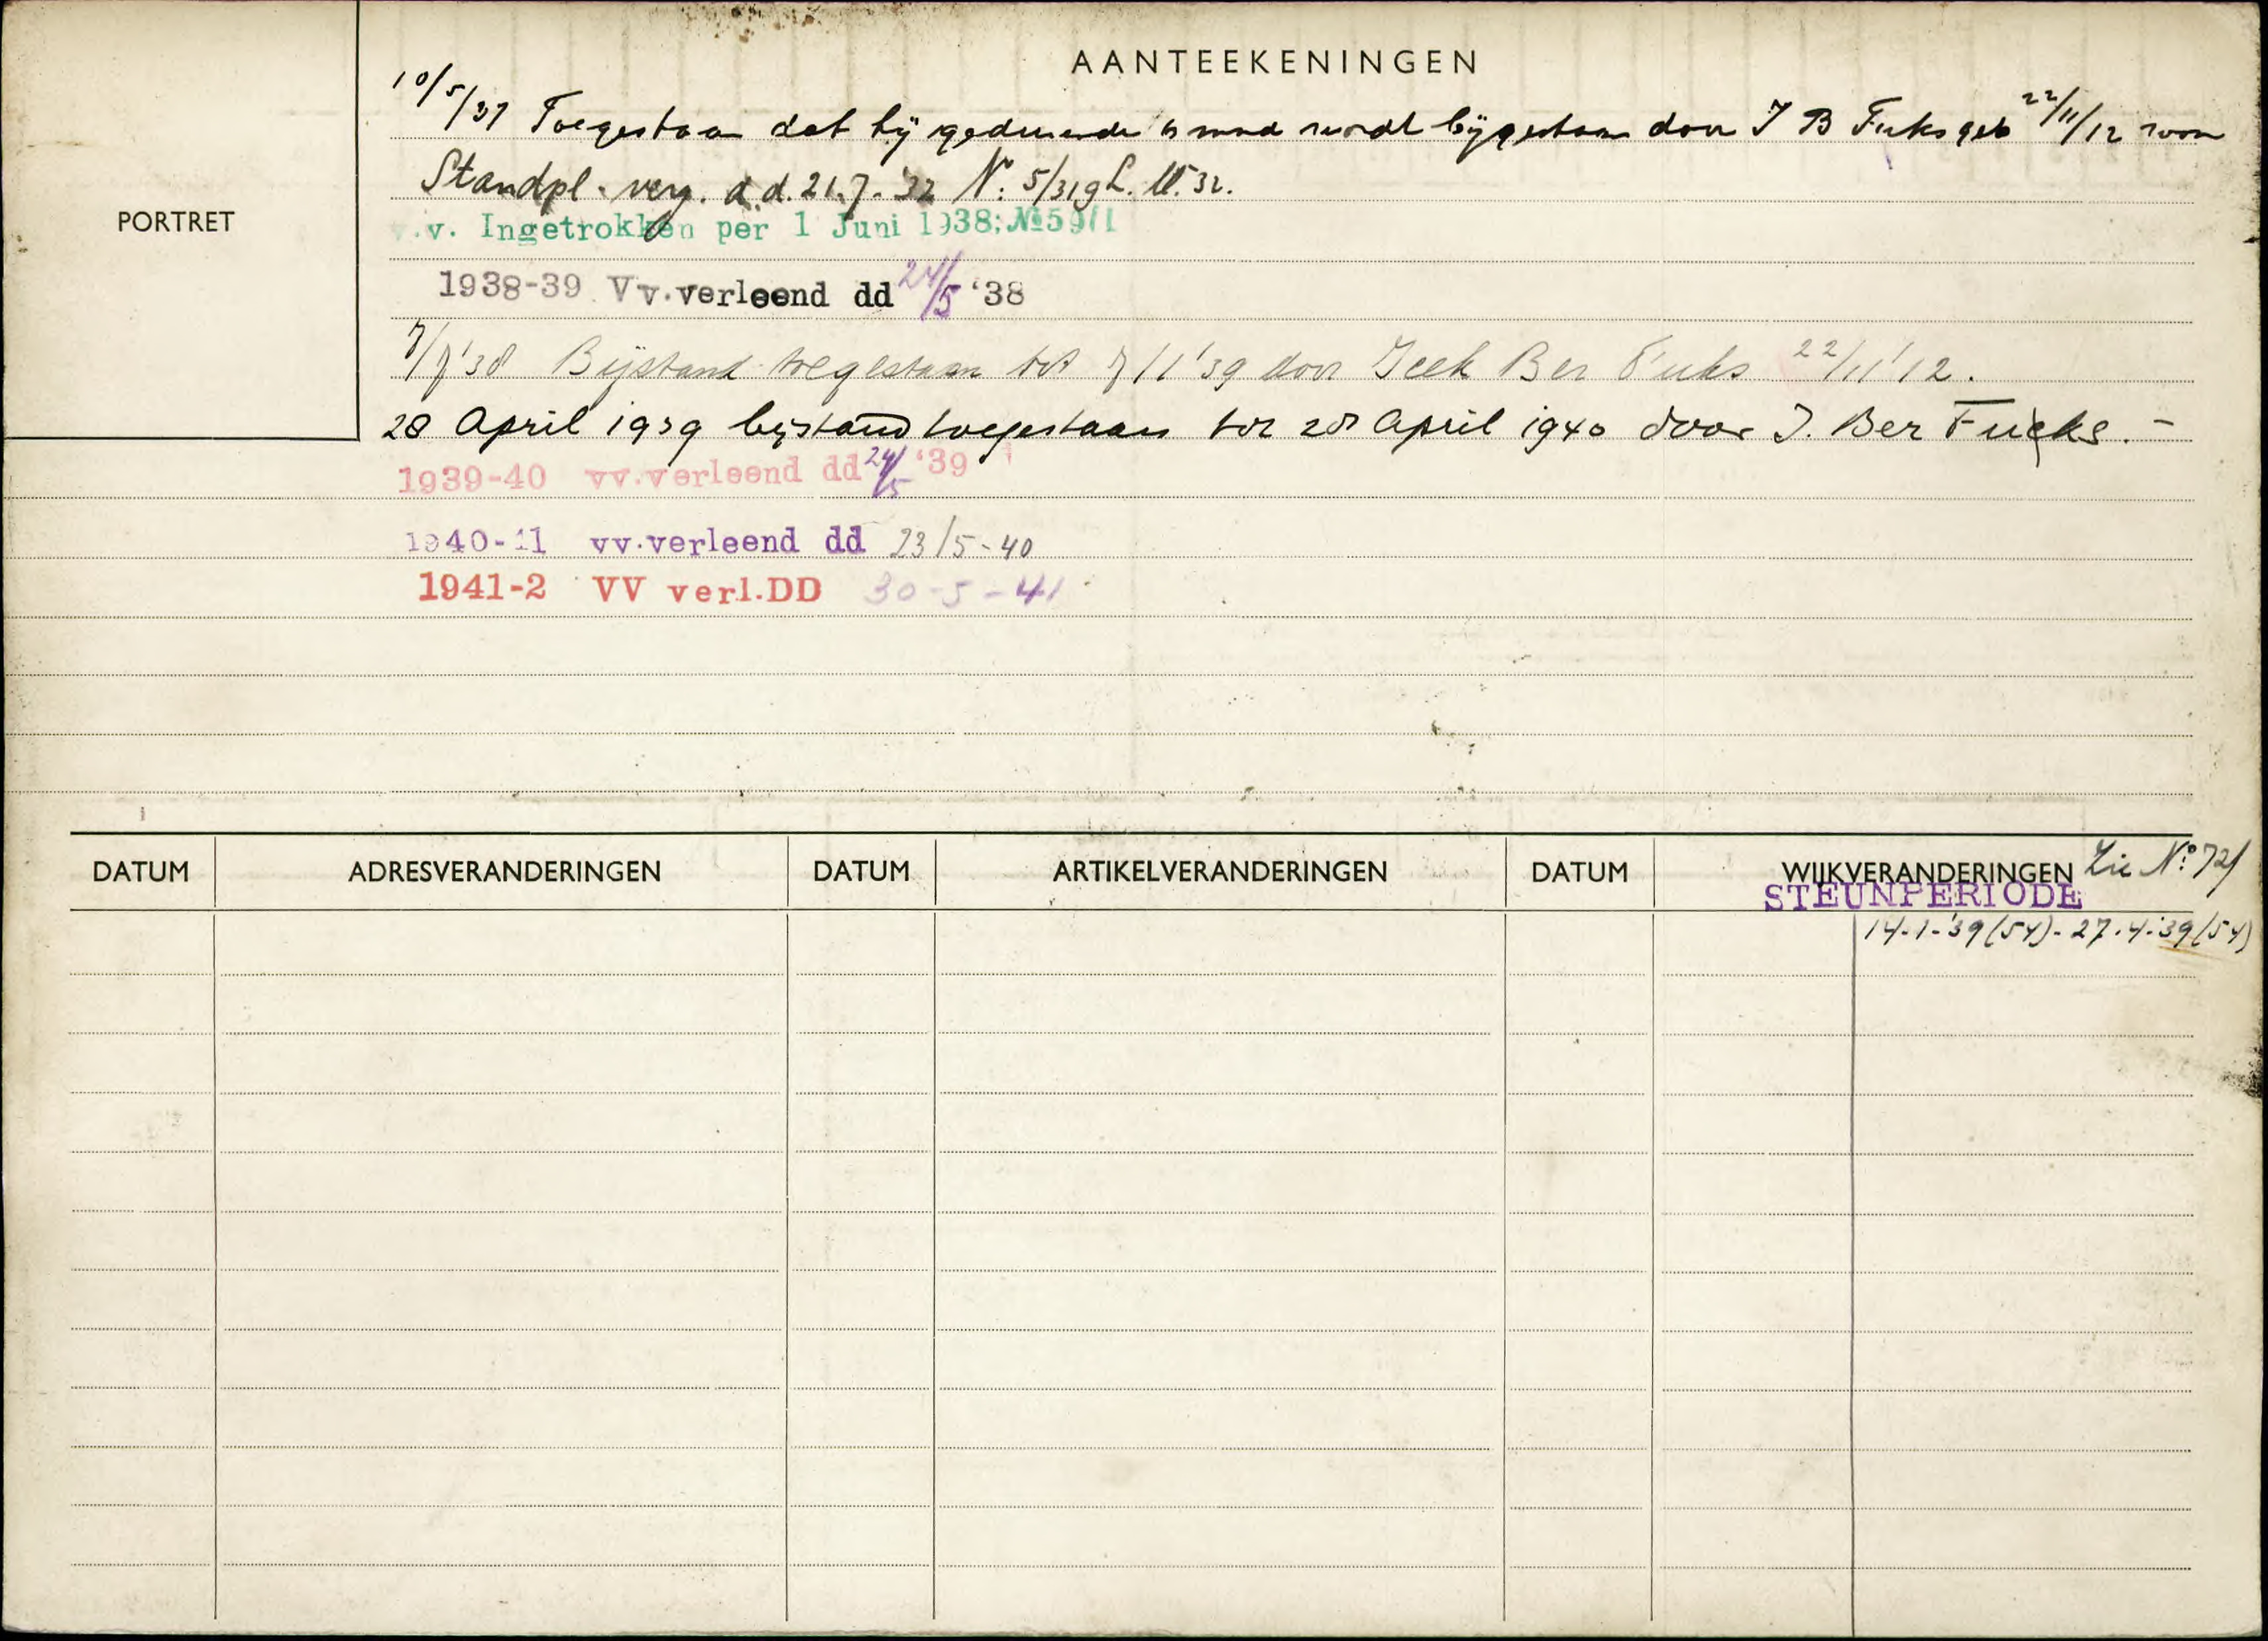 AANTEEKENINGEN
10/5/37 Toegestaan dat hij gedurende 6 mnd wordt bijgestaan door J B Fuks geb 22/11/12 zoon
Standpl. verg. d.d. 21.7.'32 No: 5/319 L.M.'32.
PORTRET
v.v. Ingetrokken per 1 Juni 1938; №59/1
1938-39 Vv.verleend dd 24/5 '38
7/7'38 Bijstand toegestaan tot 7/1'39 door Icek Ber Fuks 22/11'12.
28 April 1939 bijstand toegestaan tot 28 April 1940 door J. Ber Fucks. -
1939-40 vv.verleend dd 24/5 '39
1940-41 vv.verleend dd 23/5-40
1941-2 VV verl.DD 30-5-41
DATUM ADRESVERANDERINGEN DATUM ARTIKELVERANDERINGEN DATUM WIJKVERANDERINGEN Zie No: 72/
STEUNPERIODE
14-1-'39 (54) - 27.4.'39 (54)